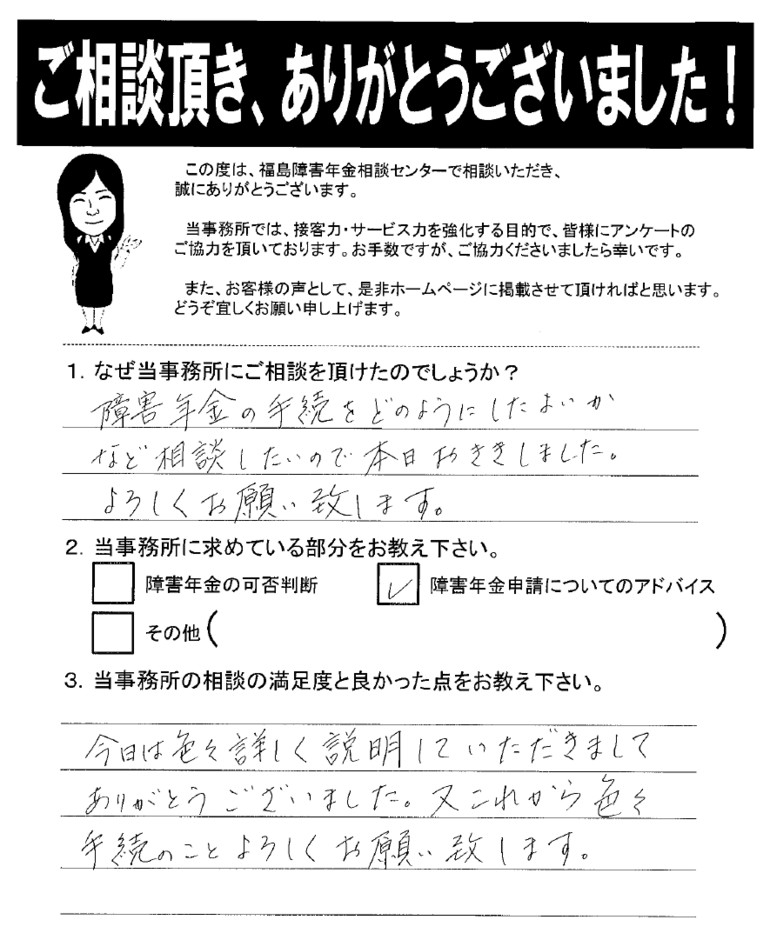 ご相談頂き、ありがとうございました!
この度は、福島障害年金相談センターで相談いただき、
誠にありがとうございます。
当事務所では、接客力・サービス力を強化する目的で、皆様にアンケートの
ご協力を頂いております。お手数ですが、ご協力くださいましたら幸いです。
また、お客様の声として、是非ホームページに掲載させて頂ければと思います。
どうぞ宜しくお願い申し上げます。
1. なぜ当事務所にご相談を頂けたのでしょうか?
障害年金の手続をどのようにしたよいか
など相談したいので本日おききしました。
よろしくお願い致します。
2. 当事務所に求めている部分をお教え下さい。
障害年金の可否判断 ✓ 障害年金申請についてのアドバイス
その他( )
3. 当事務所の相談の満足度と良かった点をお教え下さい。
今日は色々詳しく説明していただきまして
ありがとうございました。又これから色々
手続のことよろしくお願い致します。